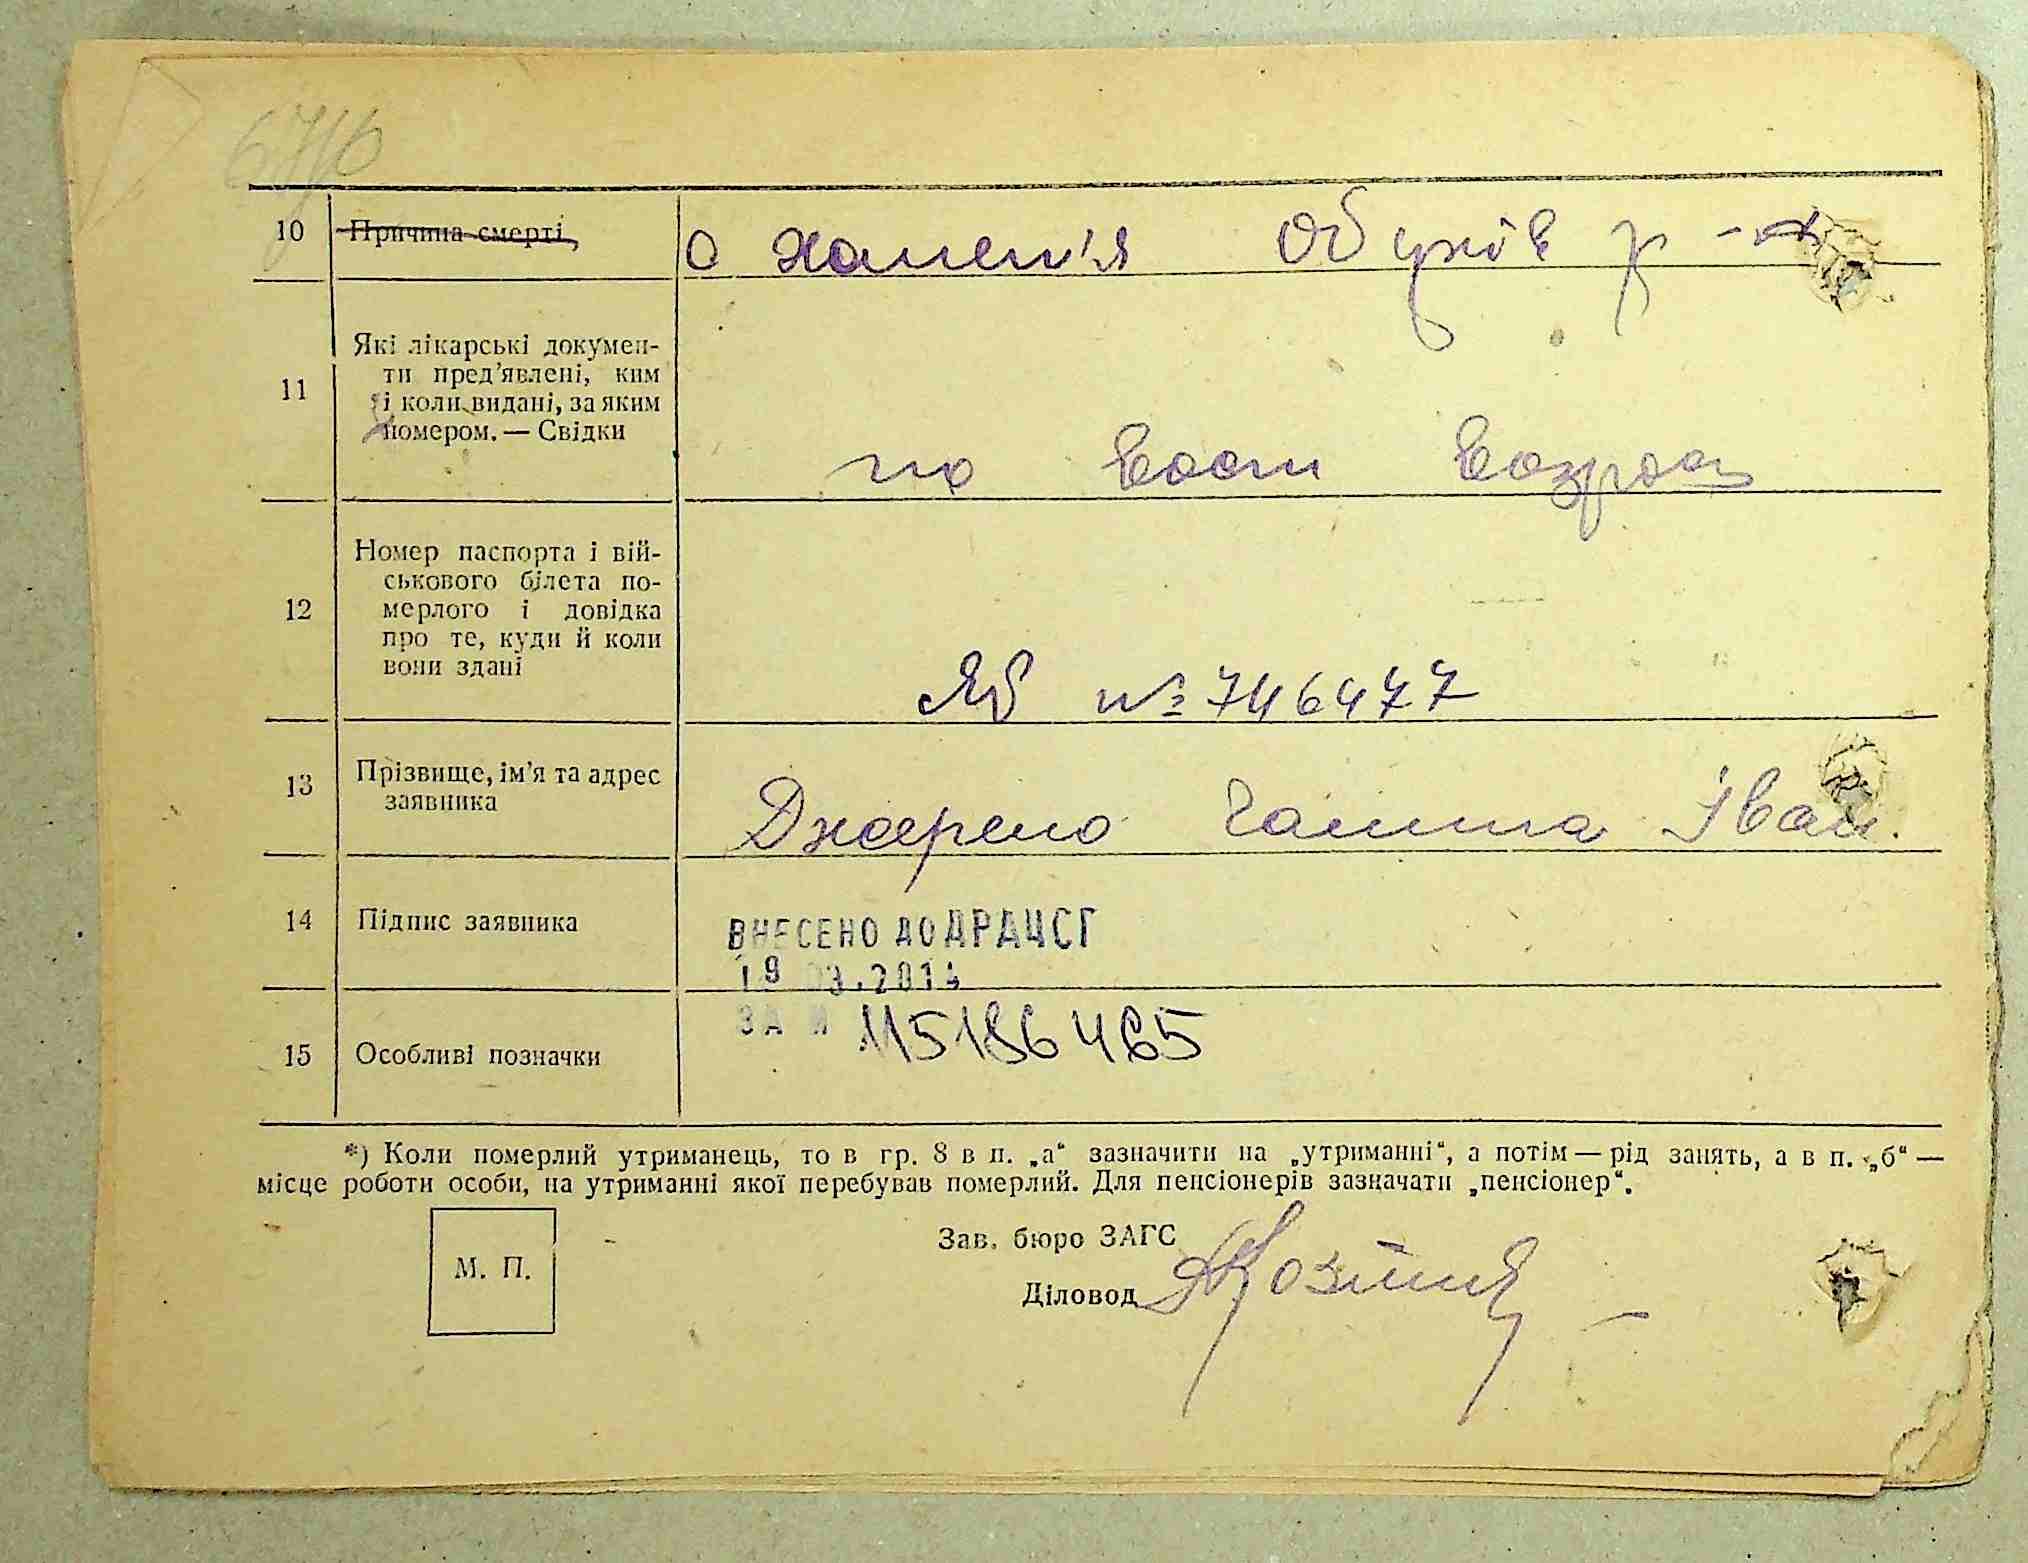 10 Причина смерті, с Халеп'я Обухів р-н
11 Які лікарські докумен-
ти пред'явлені, ким
і коли видані, за яким
номером. — Свідки
по возрас
12 Номер паспорта і вій-
ськового білета по-
мерлого і довідка
про те, куди й коли
вони здані
ЯБ № 746477
13 Прізвище, ім'я та адрес
заявника
Іван.
14 Підпис заявника
ВНЕСЕНО ДО ДРАЦСГ
19 03.2014
ЗА № 115186465
15 Особливі позначки
*) Коли померлий утриманець, то в гр. 8 в п. „а“ зазначити на „утриманні“, а потім — рід занять, а в п. „б“ —
місце роботи особи, на утриманні якої перебував померлий. Для пенсіонерів зазначати „пенсіонер“.
М. П.
Зав. бюро ЗАГС
Діловод